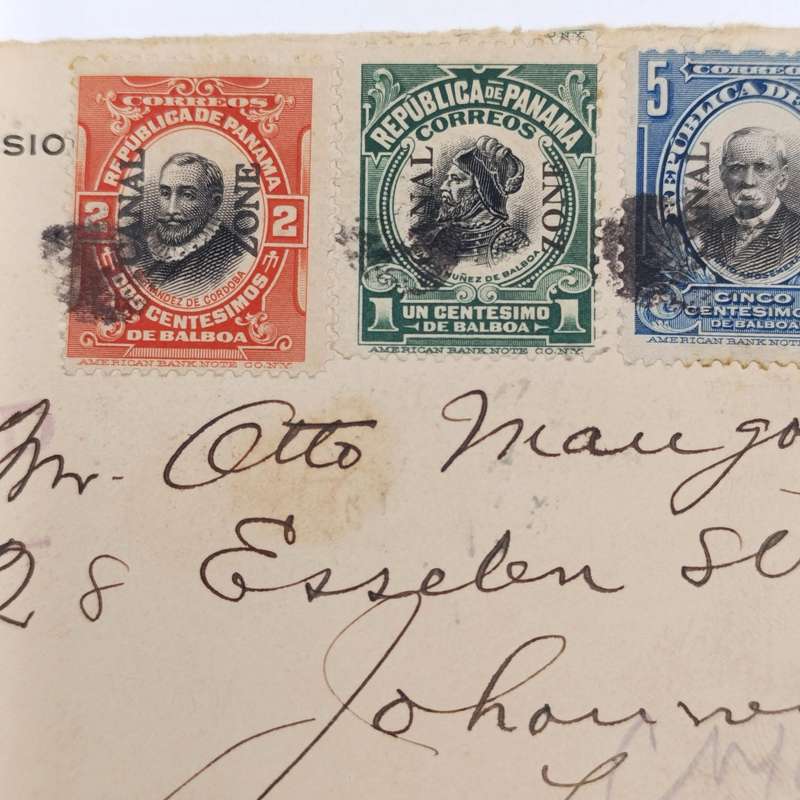 SIO
CORREOS
REPÚBLICA DE PANAMA
CANAL ZONE
2 2
FERNANDEZ DE CORDOBA
DOS CENTESIMOS
DE BALBOA
AMERICAN BANK NOTE CO. N.Y.
N.Y.
REPÚBLICA DE PANAMA
CORREOS
CANAL ZONE
NUÑEZ DE BALBOA
1 UN CENTESIMO 1
DE BALBOA
AMERICAN BANK NOTE CO. N.Y.
5 CORREOS
REPUBLICA DE
CANAL
AROSEMENA
CINCO
CENTESIMO
DE BALBOA
AMERICAN BANK NOTE CO. N.Y.
Mr. Otto Mango
28 Esselen St
Johanne